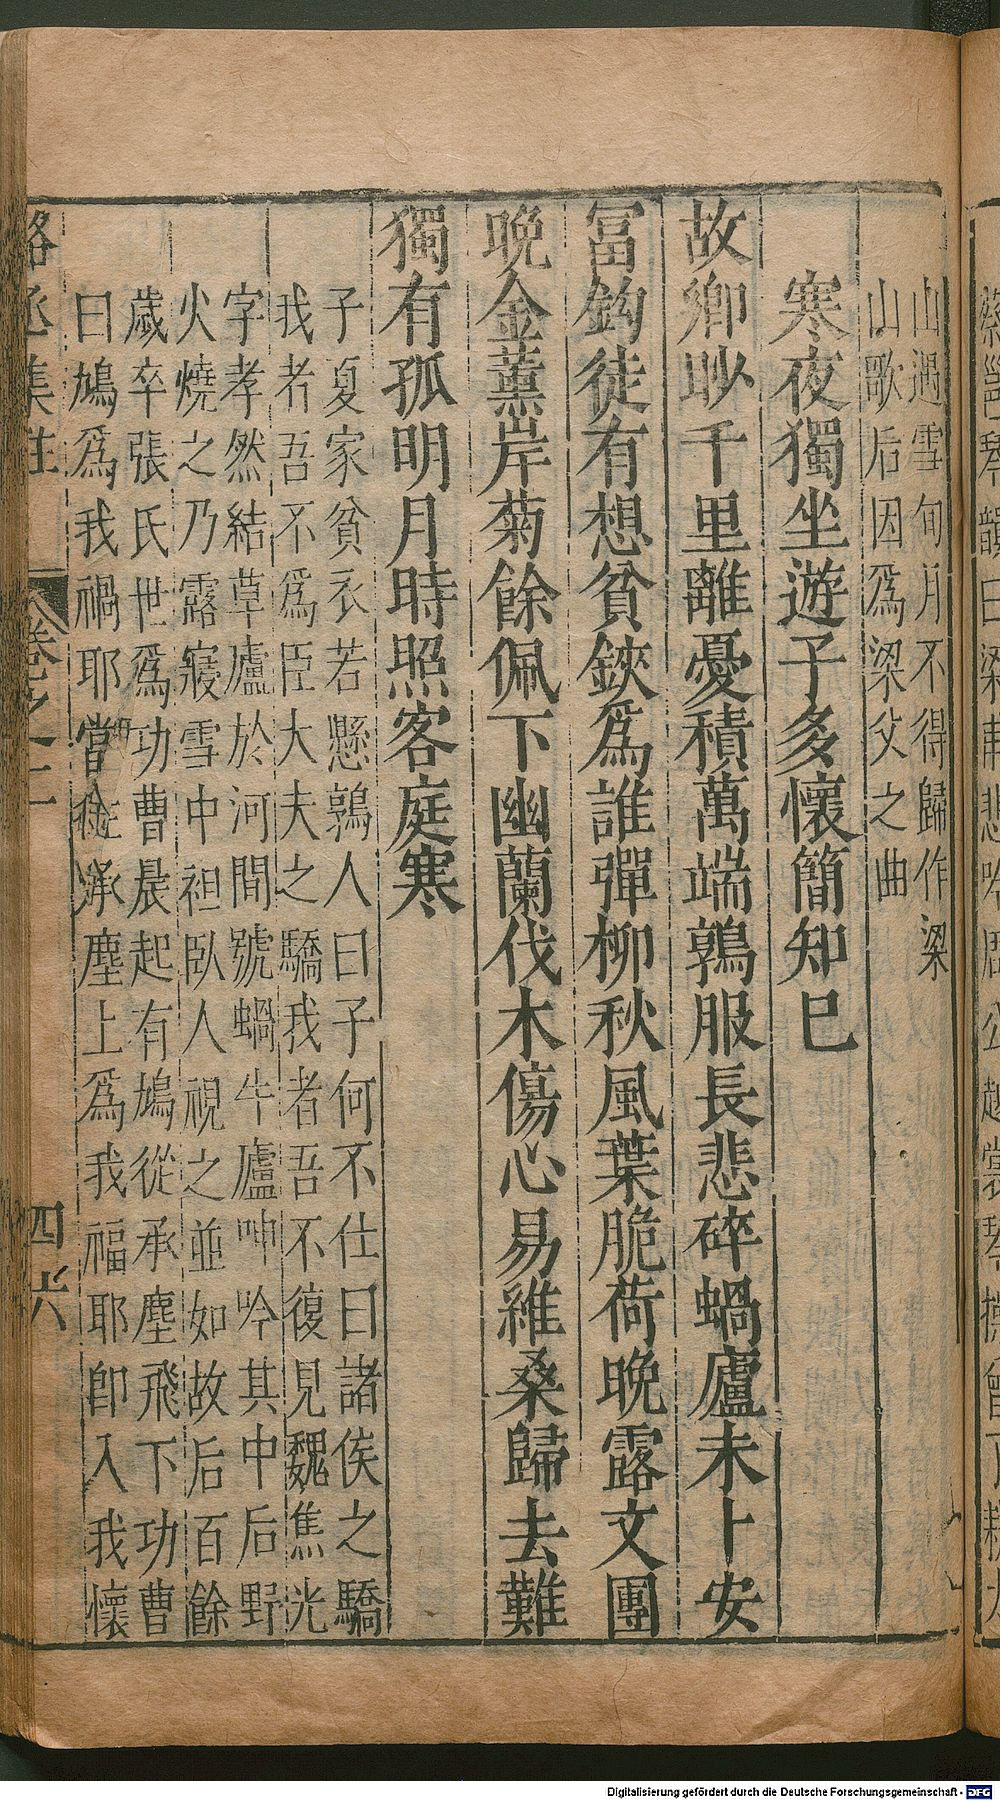 山遇雪旬月不得歸作梁
山歌后因爲梁父之曲
寒夜獨坐遊子多懷簡知巳
故鄉眇千里離憂積萬端鶉服長悲碎蝸廬未卜安
冨鈎徒有想貧鋏爲誰彈柳秋風葉脆荷晚露文團
晚金薰岸菊餘佩下幽蘭伐木傷心易維桑歸去難
獨有孤明月時照客庭寒
子夏家貧衣若懸鶉人曰子何不仕曰諸侯之驕
我者吾不爲臣大夫之驕我者吾不復見魏焦光
字孝然結草廬於河間號蝸牛廬呻吟其中后野
火燒之乃露寢雪中袒臥人視之並如故后百餘
歲卒張氏世爲功曹晨起有鳩從承塵飛下功曹
曰鳩爲我禍耶當承塵上爲我福耶卽入我懷
駱丞集註 卷之二 四十六
Digitalisierung gefördert durch die Deutsche Forschungsgemeinschaft - DFG